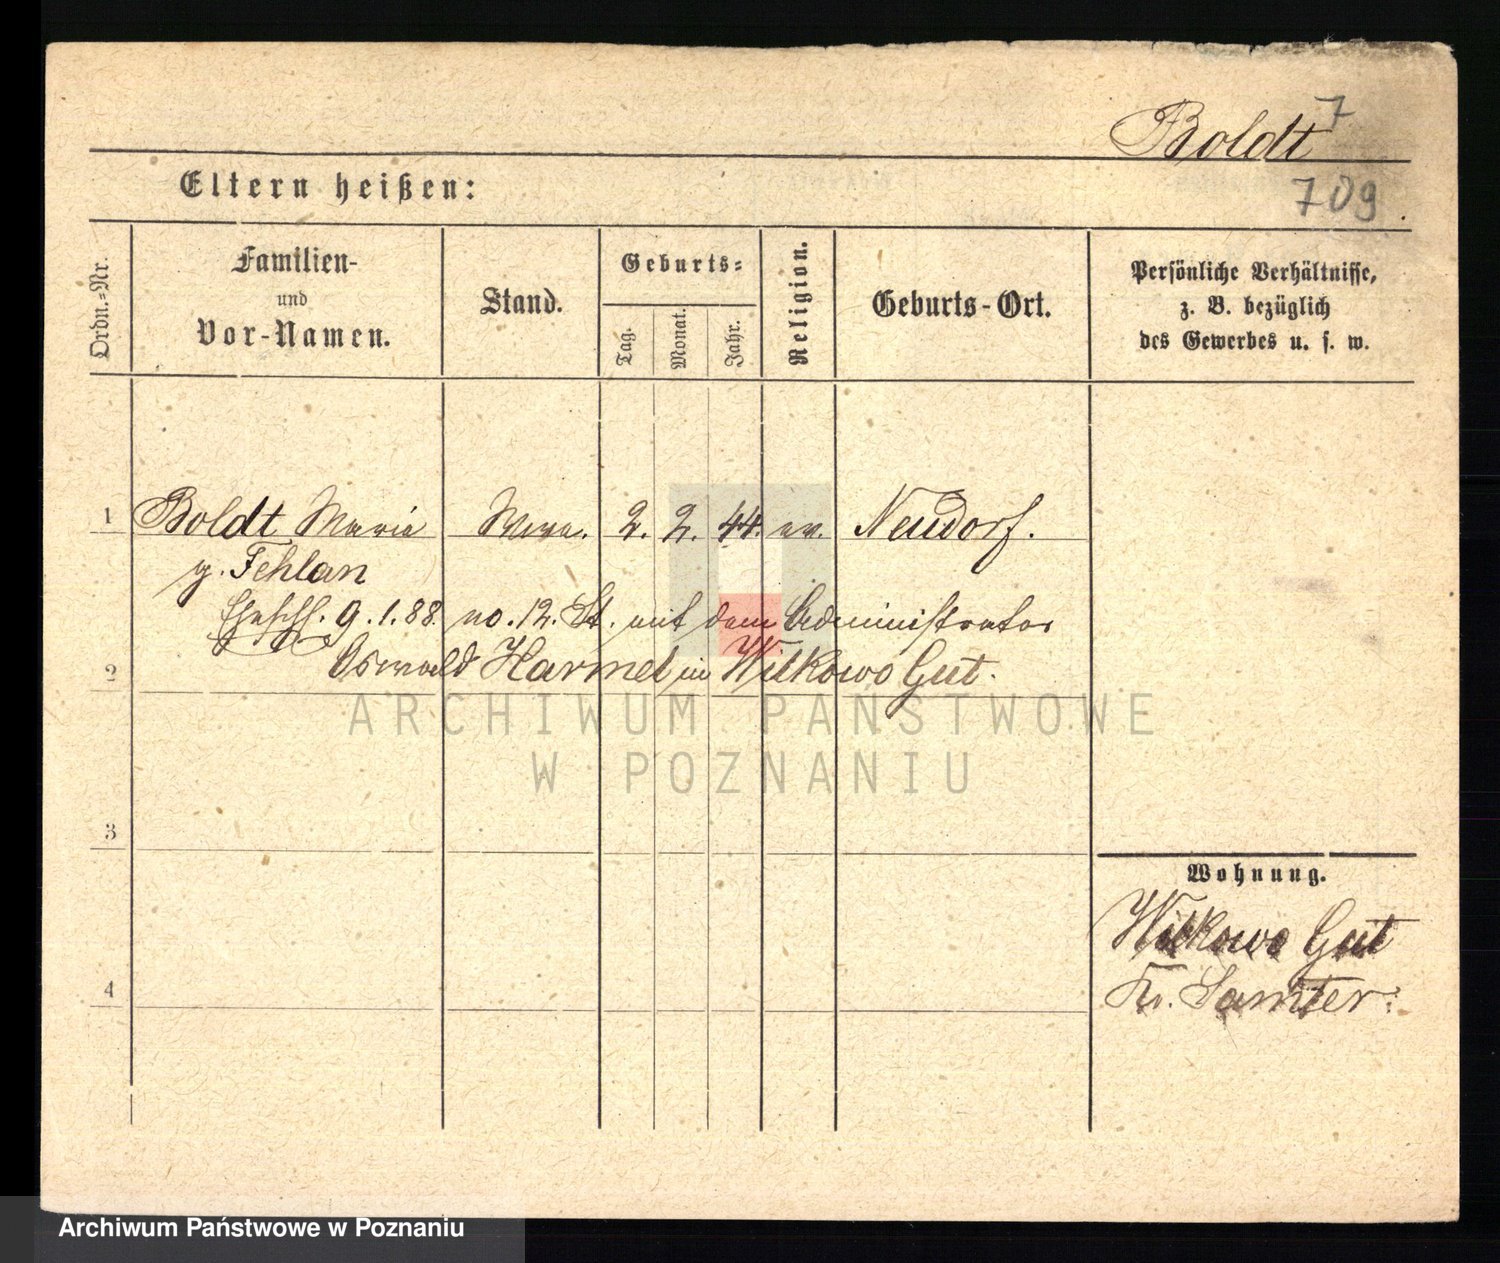 Boldt 7
Eltern heißen:
709
Ordn.=Nr.
Familien-
und
Vor-Namen.
Stand.
Geburts=
Tag.
Monat.
Jahr.
Religion.
Geburts-Ort.
Persönliche Verhältnisse,
z. B. bezüglich
des Gewerbes u. s. w.
1 Boldt Marie Wwe. 2. 2. 44. ev. Neudorf.
g. Fehlan
Eheschl. 9.1.88. no. 12. St. mit dem Administrator
2 Oswald Harmel in Wilkowo Gut.
ARCHIWUM PAŃSTWOWE
W POZNANIU
3
Wohnung.
Wilkowo Gut
4 Kr. Samter.
Archiwum Państwowe w Poznaniu